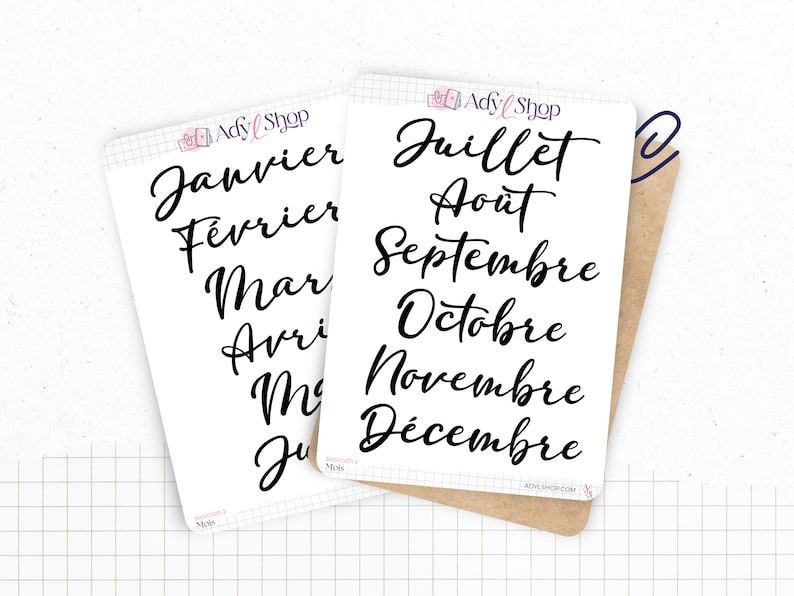 Ady l Shop
Janvier
Février
Mars
Avri
Ma
Ju
BASICS011-2
Mois
Ady l Shop
Juillet
Août
Septembre
Octobre
Novembre
Décembre
BASICS011-2
Mois
ADYLSHOP.COM